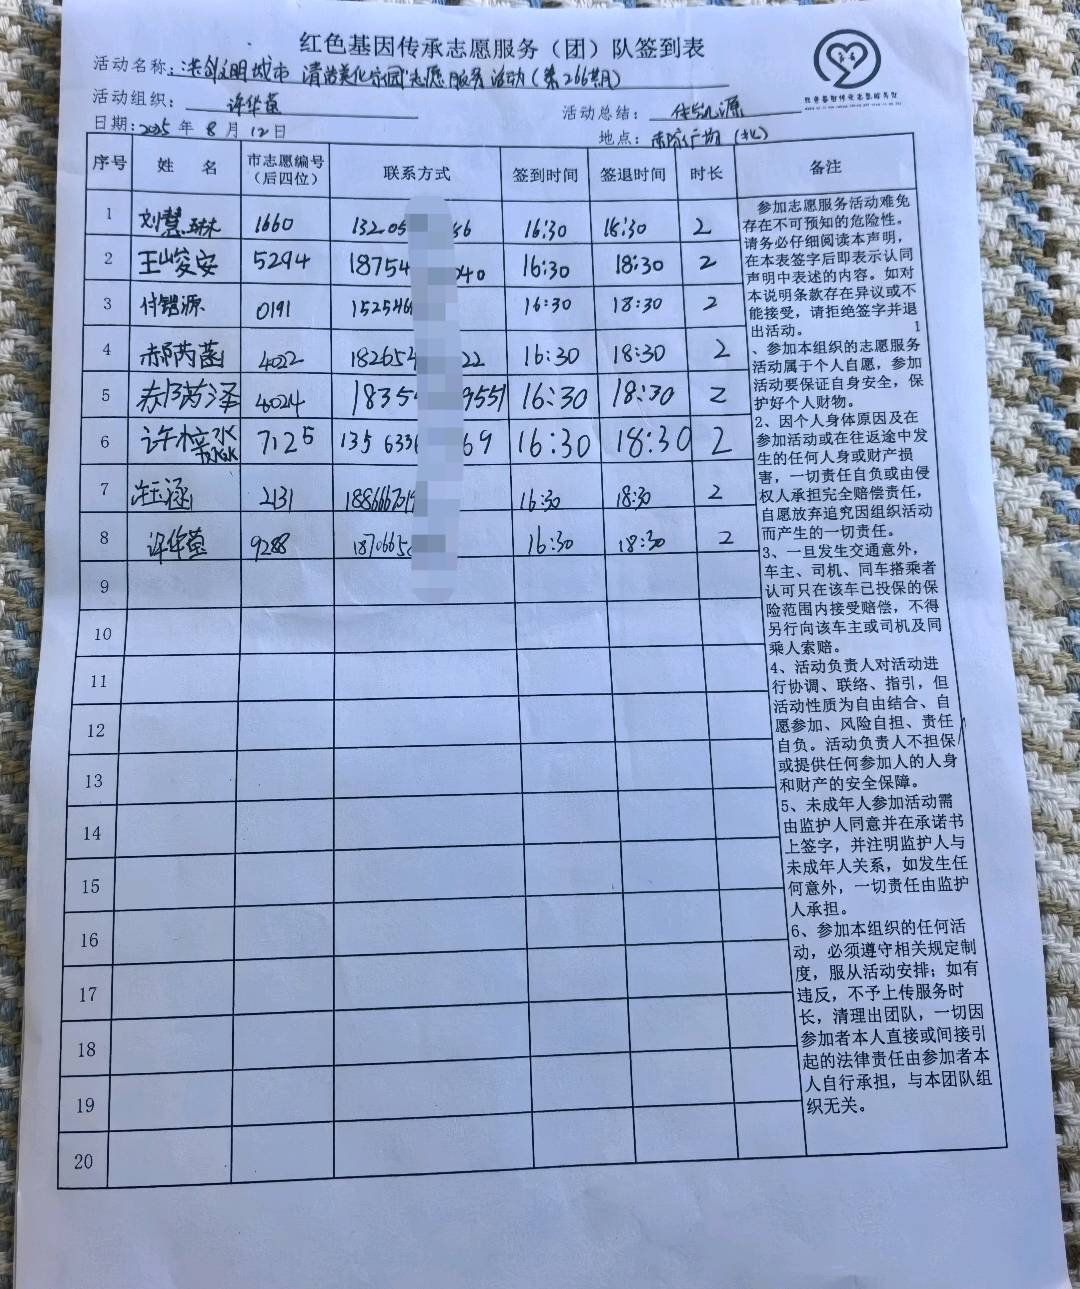 红色基因传承志愿服务（团）队签到表
活动名称：共创文明城市 清洁美化家园"志愿服务活动（第266期）
活动组织：许华莹
活动总结：付锴源
日期：2025年8月12日
地点：市府广场（北）
序号 姓 名 市志愿编号（后四位） 联系方式 签到时间 签退时间 时长 备注
1 刘慧琳 1660 13205 56 16:30 18:30 2
2 王峻安 5294 18754 040 16:30 18:30 2
3 付锴源 0191 1525466 16:30 18:30 2
4 郝芮菡 4022 182654 22 16:30 18:30 2
5 郝芮泽 4024 1835 9551 16:30 18:30 2
6 许梓淼 7125 135 6336 69 16:30 18:30 2
7 2131 188666701 16:30 18:30 2
8 许华莹 9288 1870665 16:30 18:30 2
9
10
11
12
13
14
15
16
17
18
19
20
参加志愿服务活动难免
存在不可预知的危险性。
请务必仔细阅读本声明，
在本表签字后即表示认同
声明中表述的内容。如对
本说明条款存在异议或不
能接受，请拒绝签字并退
出活动。 1
、参加本组织的志愿服务
活动属于个人自愿，参加
活动要保证自身安全，保
护好个人财物。
2、因个人身体原因及在
参加活动或在往返途中发
生的任何人身或财产损
害，一切责任自负或由侵
权人承担完全赔偿责任，
自愿放弃追究因组织活动
而产生的一切责任。
3、一旦发生交通意外，
车主、司机、同车搭乘者
认可只在该车已投保的保
险范围内接受赔偿，不得
另行向该车主或司机及同
乘人索赔。
4、活动负责人对活动进
行协调、联络、指引，但
活动性质为自由结合、自
愿参加、风险自担、责任
自负。活动负责人不担保
或提供任何参加人的人身
和财产的安全保障。
5、未成年人参加活动需
由监护人同意并在承诺书
上签字，并注明监护人与
未成年人关系，如发生任
何意外，一切责任由监护
人承担。
6、参加本组织的任何活
动，必须遵守相关规定制
度，服从活动安排；如有
违反，不予上传服务时
长，清理出团队，一切因
参加者本人直接或间接引
起的法律责任由参加者本
人自行承担，与本团队组
织无关。